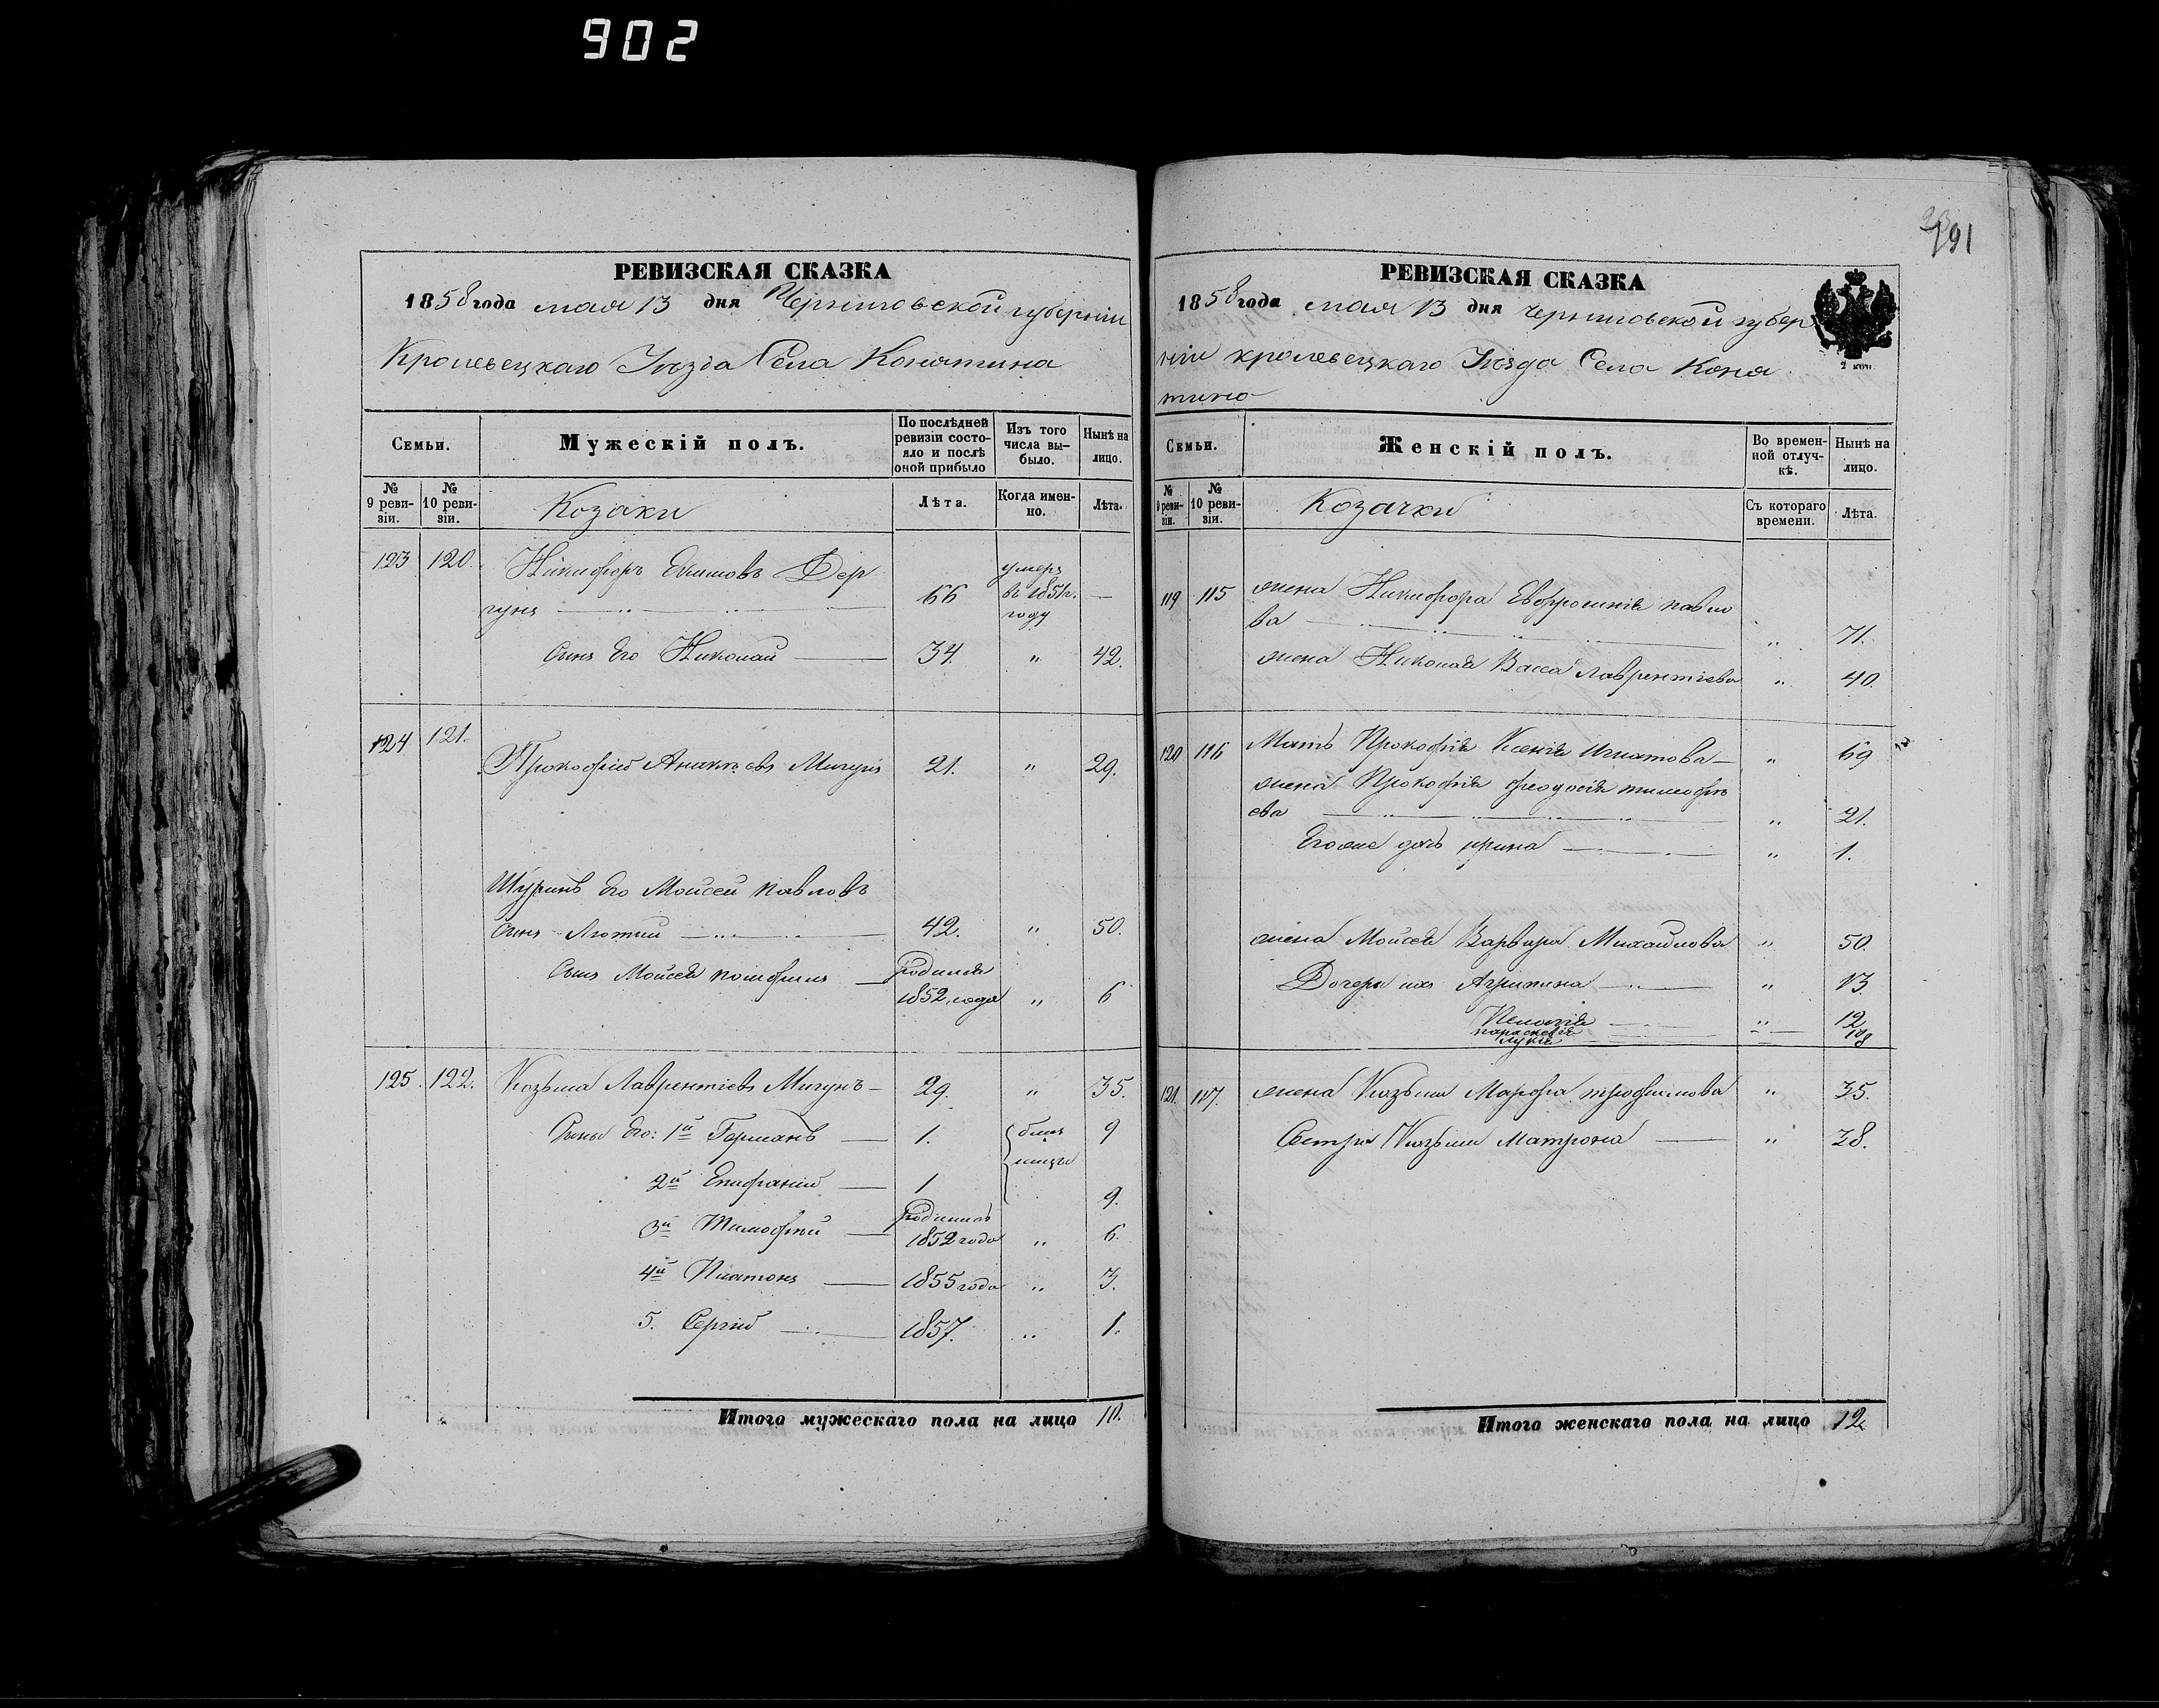 902
191
РЕВИЗСКАЯ СКАЗКА
1858 года мая 13 дня Черниговской губерніи
Кролевецкаго Уѣзда Села Конятина
Семьи.
Мужескій полъ.
По послѣдней ревизіи состояло и послѣ оной прибыло
Изъ того числа выбыло.
Нынѣ на лицо.
№ 9 ревизіи.
№ 10 ревизіи.
Козаки
Лѣта.
Когда именно.
Лѣта.
123 120. Никифоръ Екимовъ Дер
гунъ 66 умеръ въ 1851г. году —
Сынъ Его Николай 34. " 42.
124 121. Прокофій Ананьевъ Мигунъ 21. " 29.
Шуринъ Его Моисей Павловъ
Сынъ Лютый 42. " 50.
Сынъ Моисея Памфилъ родился 1852 года " 6
125. 122. Козьма Лаврентіевъ Мигунъ 29. " 35.
Сыны Его: 1й Германъ 1. близнецы 9
2й Епифаній 1 9.
3й Тимофей родился 1852 года " 6.
4й Платонъ 1855 года " 3.
5. Сергій 1857. " 1.
Итого мужескаго пола на лицо 10.
РЕВИЗСКАЯ СКАЗКА
1858 года мая 13 дня Черниговской губер
ніи кролевецкаго Уѣзда Села Коня
тина
2 коп.
Семьи.
Женскій полъ.
Во временной отлучкѣ.
Нынѣ на лицо.
№ 9 ревизіи.
№ 10 ревизіи.
Козачки
Съ котораго времени.
Лѣта.
119 115 жена Никифора Евфросинія Павло
ва " 71.
жена Николая Васса Лаврентіева " 40.
120 116 Мать Прокофія Ксенія Игнатова " 69
жена Прокофія Феодосія тимофѣ
ева " 21.
Егоже дочь ирина " 1.
жена Моисея Варвара Михайлова " 50.
Дочери ихъ Агрипина " 13
Пелагія " 12
параскевія
лукія 8
121. 117. жена Козьмы Марфа трофимова " 35.
Сестра Козьмы Матрона " 38.
Итого женскаго пола на лицо 12